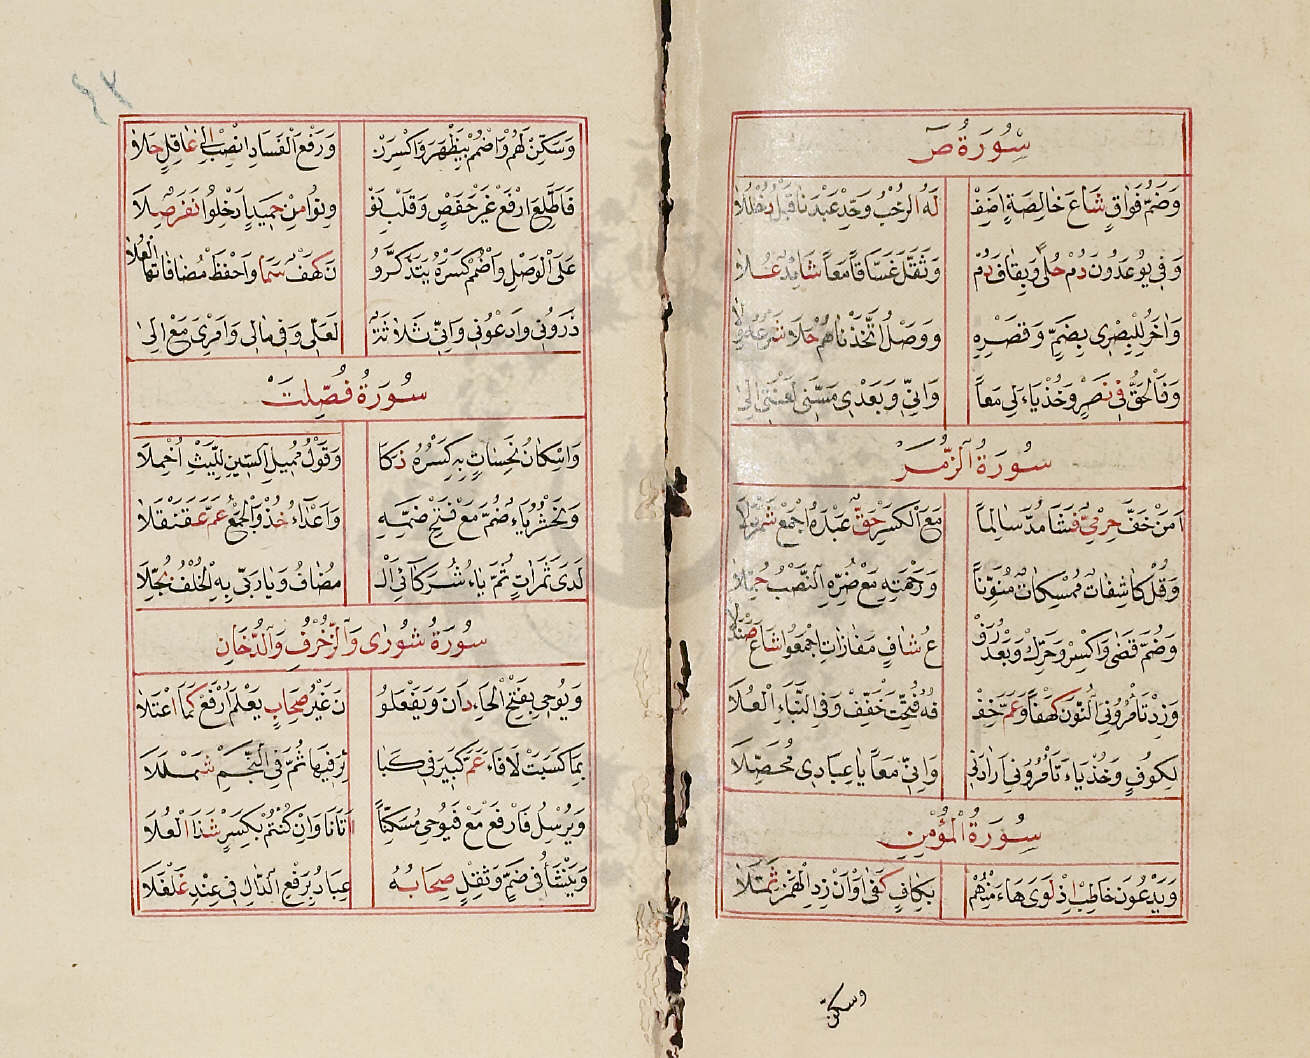 سُورَةُ صٓ
وَضَمُّ فَوَاقٍ شَاعَ خَالِصَةٍ اَضِفْ لَهُ الرُّحْبُ وَحِّدْ عَبْدَنَا قَبْلُ دُخْلُلَا
وَفِي يُوعَدُونَ دُمْ حُلًى وَبِقَافَ دُمْ وَثَقَّلَ غَسَّاقًا مَعًا شَائِدٌ عُلَا
وَاٰخَرُ لِلْبَصْرِي بِضَمٍّ وَقَصْرِهِ وَوَصْلُ اتَّخَذْنَاهُمْ حَلَا شَرْعُهُ وِلَا
وَفَالْحَقُّ فِي نَصْرٍ وَخُذْ يَاءَ لِي مَعًا وَاِنِّي وَبَعْدِي مَسَّنِي لَعْنَتِي اِلَى
سُورَةُ الزُّمَرْ
اَمَنْ خَفَّ حِرْمِيٌّ فَشَا مَدَّ سَالِمًا مَعَ الْكَسْرِ حَقٌّ عَبْدَهُ اجْمَعْ شَمَرْدَلَا
وَقُلْ كَاشِفَاتٌ مُمْسِكَاتٌ مُنَوِّنًا وَرَحْمَتِهِ مَعْ ضُرِّهِ النَّصْبُ حُمِّلَا
وَضُمَّ قَضٰى وَاكْسِرْ وَحَرِّكْ وَبَعْدُ رَفْ عُ شَافٍ مَفَازَاتِ اجْمَعُوا شَاعَ صَنْدَلَا
وَزِدْ تَأْمُرُونِي النُّونَ كَهْفًا وَعَمَّ خِفْ فُهُ فُتِّحَتْ خَفِّفْ وَفِي النَّبَاءِ الْعُلَا
لِكُوفٍ وَخُذْ يَاءَ تَأْمُرُونِي اَرَادَنِي وَاِنِّي مَعًا يَا عِبَادِي مُحَصِّلَا
سُورَةُ الْمُؤْمِنِ
وَيَدْعُونَ خَاطِبْ اِذْ لَوٰى هَاءَ مِنْهُمْ بِكَافٍ كَفٰى اَوْ اَنْ زِدِ الْهَمْزَ ثُمَّلَا
وسكن
وَسَكِّنْ لَهُمْ وَاضْمُمْ بِيَظْهَرَ وَاكْسِرَنْ وَرَفْعَ الْفَسَادَ انْصِبْ اِلٰى عَاقِلٍ حَلَا
فَاَطَّلِعَ ارْفَعْ غَيْرَ حَفْصٍ وَقَلْبِ نَوْ وِنُوا مِنْ حَمِيدٍ اَدْخِلُوا نَفَرٌ صِلَا
عَلَى الْوَصْلِ وَاضْمُمْ كَسْرَهُ يَتَذَكَّرُو نَ كَهْفٌ سَمَا وَاحْفَظْ مُضَافَاتِهَا الْعُلَا
ذَرُونِي وَادْعُونِي وَاِنِّي ثَلَاثَةٌ لَعَلِّي وَفِي مَالِي وَاَمْرِيَ مَعْ اِلٰى
سُورَةُ فُصِّلَتْ
وَاِسْكَانُ نَحِسَاتٍ بِهِ كَسْرُهُ ذَكَا وَقَوْلُ مُمِيلِ السِّينِ لِلَّيْثِ اُخْمِلَا
وَنَحْشُرُ يَاءٌ ضُمَّ مَعْ فَتْحِ ضَمِّهِ وَاَعْدَاءُ خُذْ وَالْجَمْعُ عَمَّ عَقَنْقَلَا
لَدٰى ثَمَرَاتٍ ثُمَّ يَاءُ شُرَكَائِيَ الْـ مُضَافُ وَيَا رَبِّي بِهِ الْخُلْفُ بُجِّلَا
سُورَةُ شُورٰى وَالزُّخْرُفِ وَالدُّخَانِ
وَيُوحٰى بِفَتْحِ الْحَاءِ دَانَ وَيَفْعَلُو نَ غَيْرُ صِحَابٍ يَعْلَمُ ارْفَعْ كَمَا اعْتَلَا
بِمَا كَسَبَتْ لَا فَاءَ عَمَّ كَبِيرَ فِي كَبَا ئِرَ فِيهَا ثُمَّ فِي النَّجْمِ شَمْلَلَا
وَيُرْسِلَ فَارْفَعْ مَعْ فَيُوحِي مُسَكِّنًا اَتَانَا وَاَنْ كُنْتُمْ بِكَسْرٍ شَذَا الْعُلَا
وَيَنْشَأُ فِي ضَمٍّ وَثِقْلٍ صِحَابُهُ عِبَادُ بِرَفْعِ الدَّالِ فِي عِنْدَ غَلْغَلَا